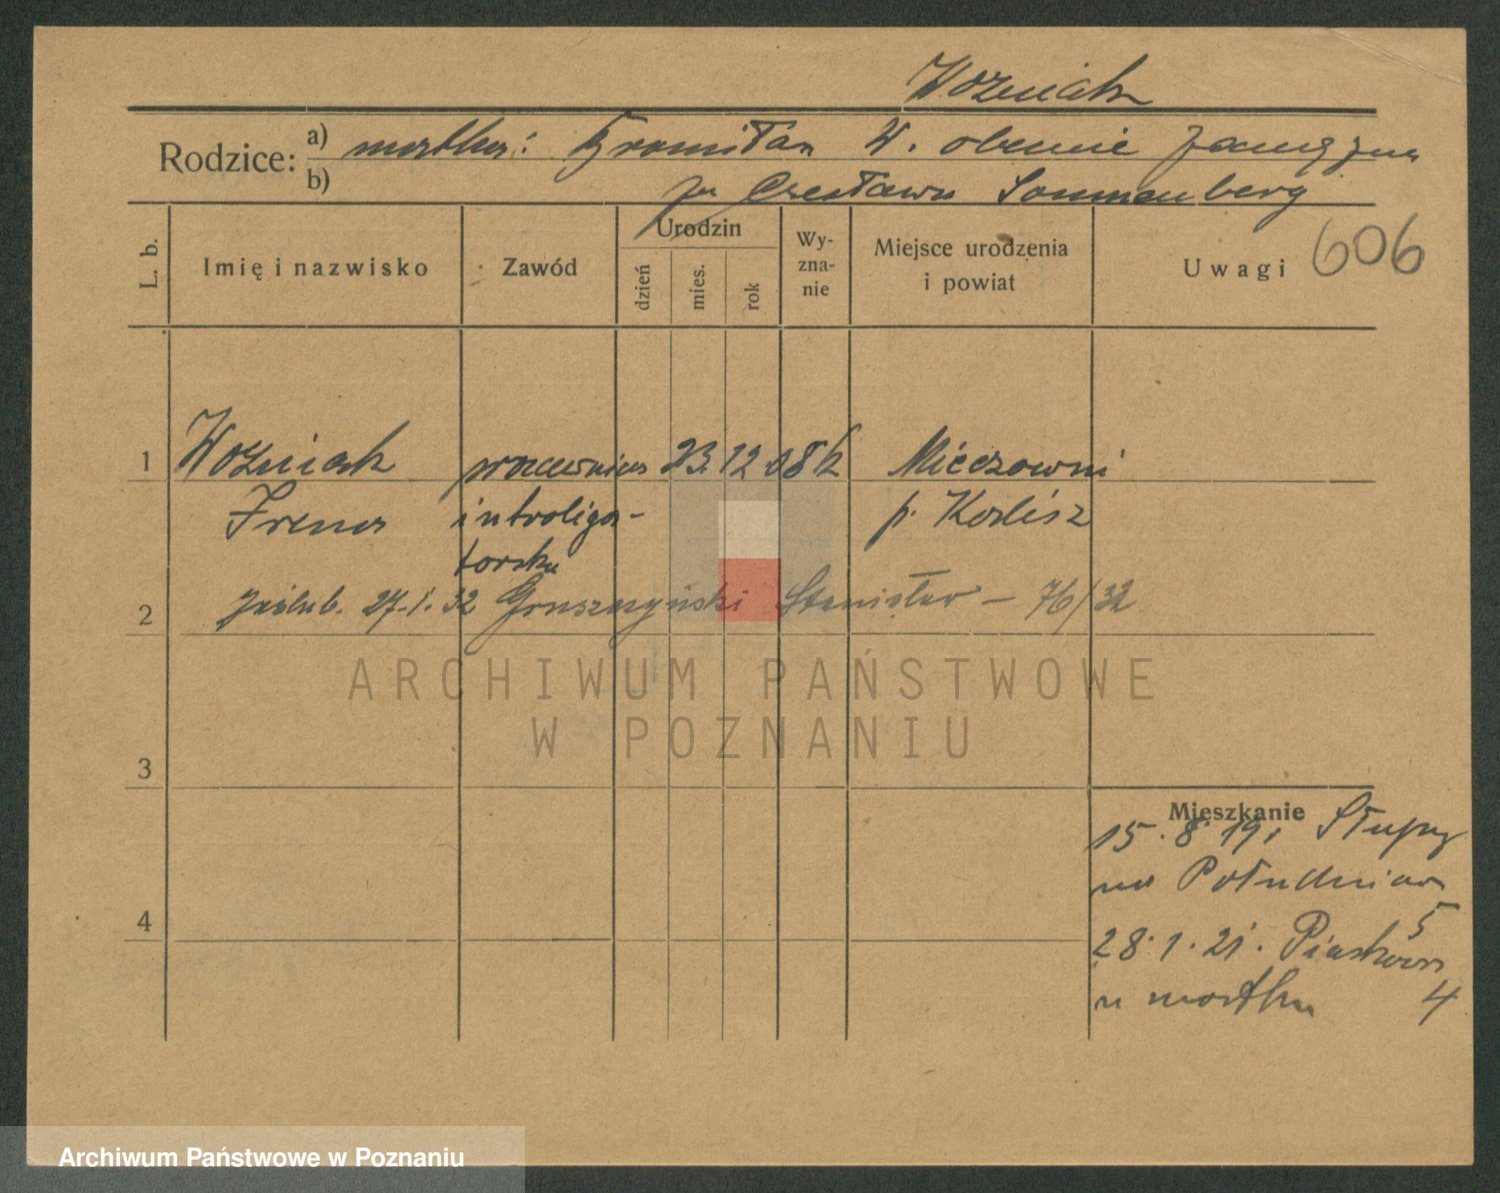 Wozniak
Rodzice: a) matka: W. obecnie zamężna
b) za Czesława Sonnenberg
L. b.
Imię i nazwisko
Zawód
Urodzin
dzień
mies.
rok
Wy-
zna-
nie
Miejsce urodzenia
i powiat
Uwagi
606
1 Wozniak 23. 12. 08 k
Irena introliga- p. Kalisz
torska
2 zaślub. 27.1.32 Gruszczyński Stanisław – 76/32
ARCHIWUM PAŃSTWOWE
W POZNANIU
3
Mieszkanie
15.8.19. Słupy
na
4
5
28.1.21. Piaskowa
u matki 4
Archiwum Państwowe w Poznaniu